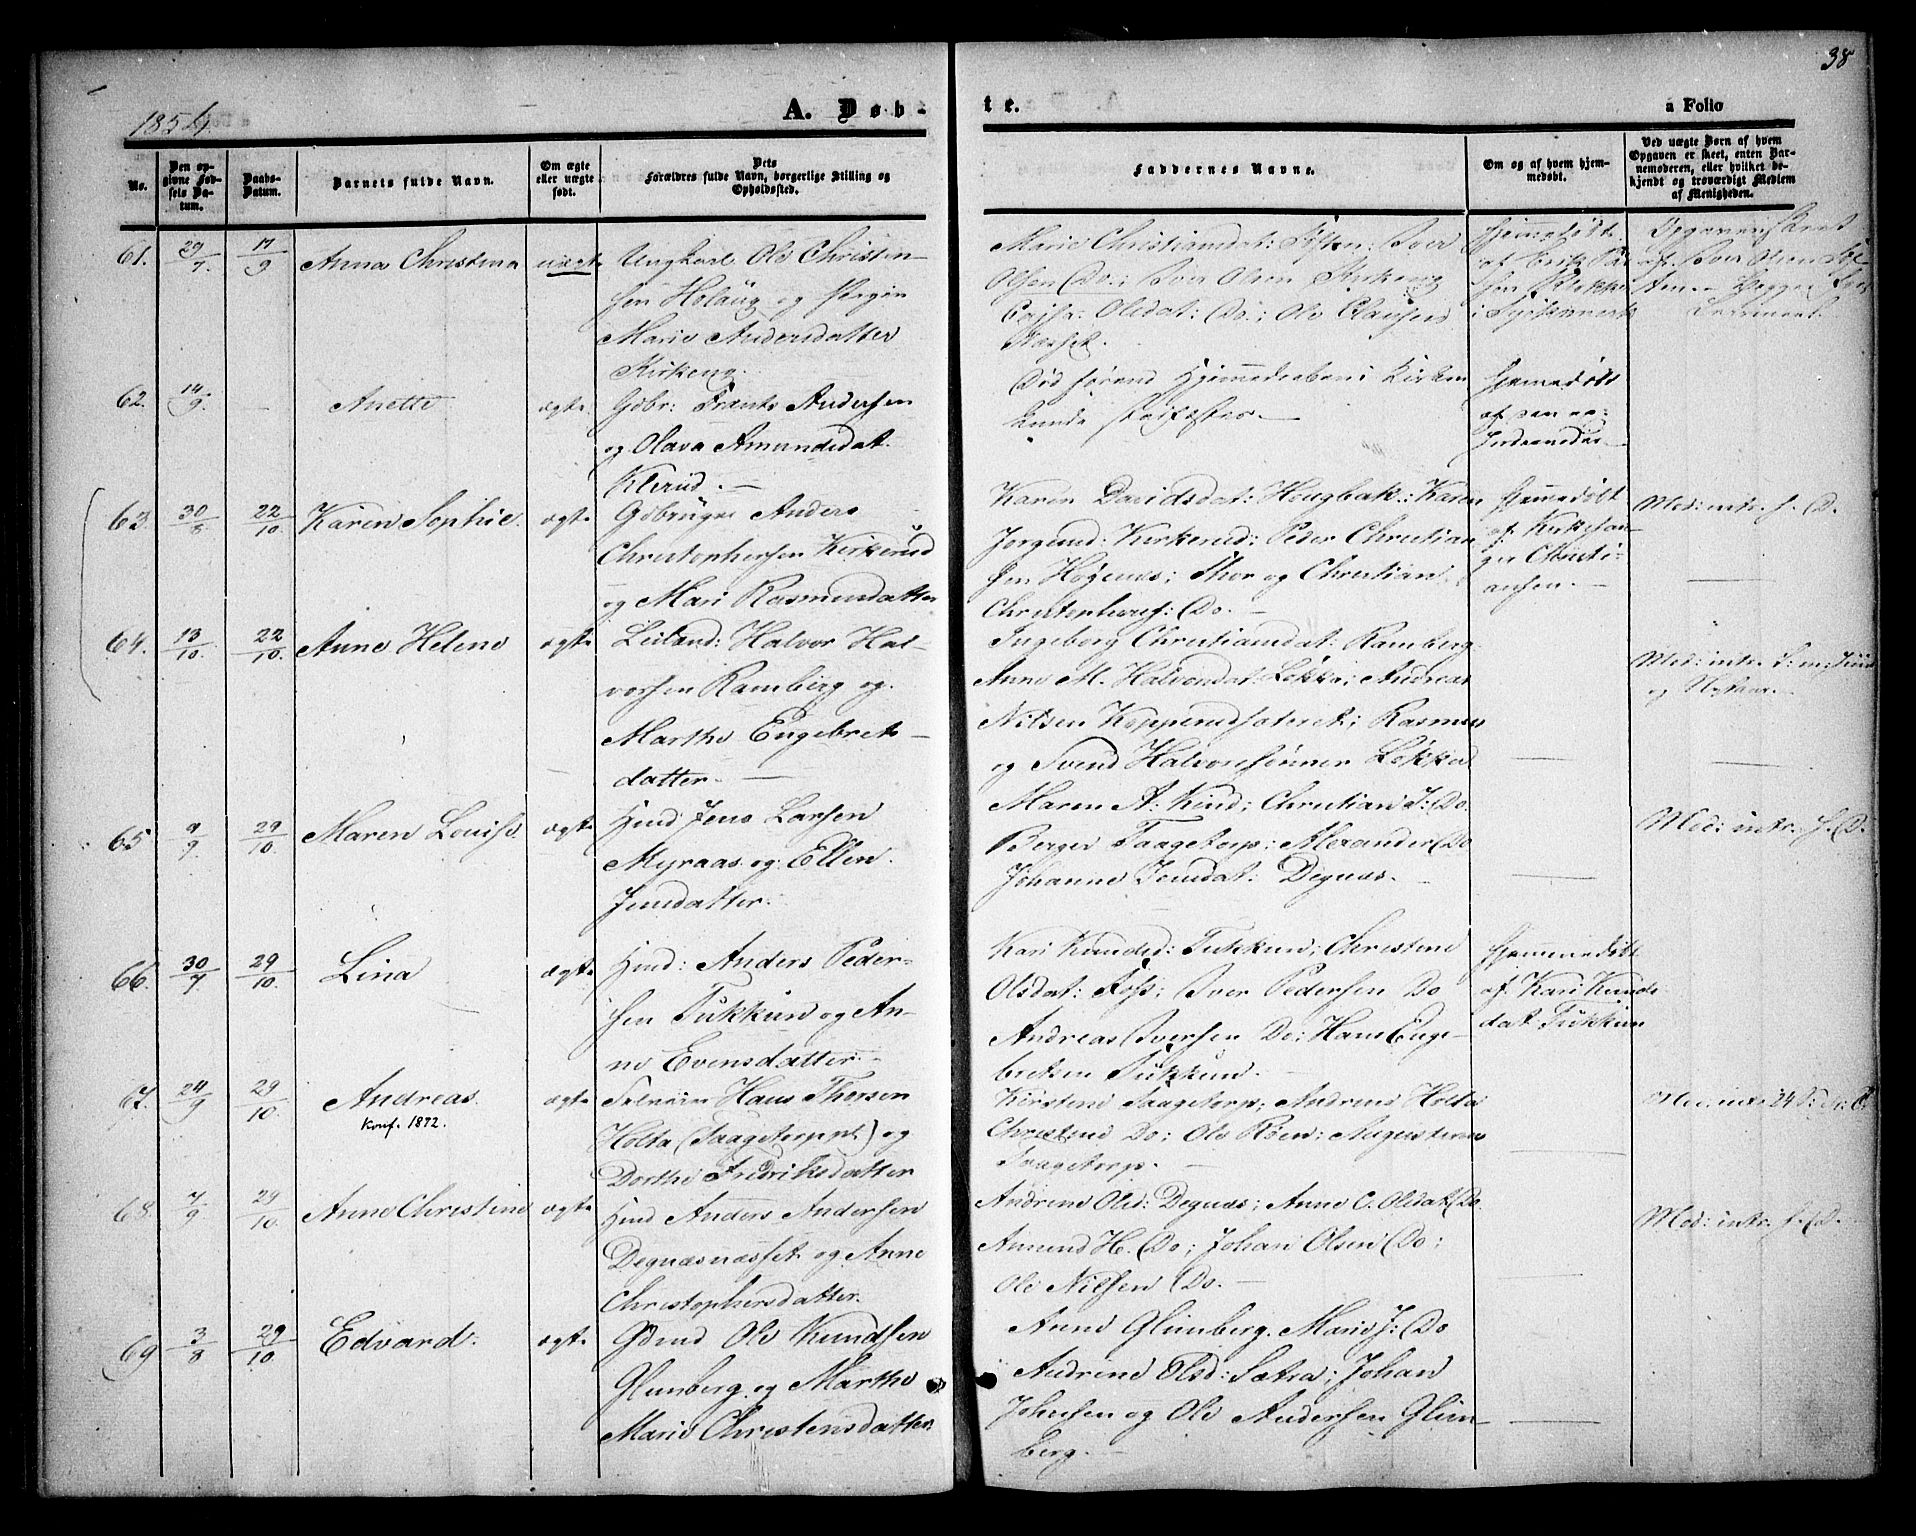 38
1854
A. Døb-
te.
a Folio
No.
Den op-
givne Fød-
sels Da-
tum.
Daabs-
Datum.
Barnets fulde Navn.
Om ægte
eller uægte
født.
Dets
Forældres fulde Navn, borgerlige Stilling og
Opholdssted.
Faddernes Navne.
Om og af hvem hjem-
medøbt.
Ved uægte Børn af hvem
Opgaven er skeet, enten Bar-
nemoderen, eller hvilket be-
kjendt og troværdigt Medlem
af Menigheden.
61. 29/7 17/9 Anna Christina uægt
Ungkarl Ole Christen-
sen Holaug og Pergin
Marie Andersdatter
Kirkeng.
Marie Christiansdat: Iver
Olsen Do.; Iver Olsen Kirkeng
Cajsa Olsdat: Do; Ole Clausen
Næsset.
Hjemmedøbt
af Erik
62. 14/9 — Anette ægte
Gdbr: Frants Andersen
og Olava Amundsdat.
Kleriud. —
Død førend Hjemmedaaben i Kirken
kunde stadfæstes. —
Hjemmedøbt
af
63. 30/8 22/10 Karen Sophie. ægte
Gdbruger Anders
Christophersen Kirkerud
og Mari Rasmusdatter
Karen Davidsdat: Hougbak: Karen
Jorgine Kirkerud: Peder Christian
sen Høgenes; Thor og Christian
Christophers: Do. —
Hjemmedøbt
af Kirkesan-
ger Christi-
ansen. —
Mod: intr. s. D.
64. 13/10 22/10 Anne Helene ægte
Leiland: Halvor Hal-
vorsen Ramberg og
Marthe Engebrets-
datter. —
Ingeborg Christiansdat: Ramberg
Anne M. Halvorsdat: Løkka; Andreas
Nilsen Kopperudsæteret; Rasmus
og Svend Halvorssønner Løkka
Mod: intr.
65 9/9 29/10 Maren Louise. ægte
Hmd Jens Larsen
Myraas og Ellen
Jensdatter.
Maren A. Kind; Christian J: Do.
Berger Taagetorp: Alexander Do
Johanne Jensdat: Degnæs.
Mod: intr. s. D.
66. 30/7 29/10 Lina ægte
Hmd: Anders Peder-
sen Tukkun og An-
ne Evensdatter.
Kari Knudsd: Tukkun; Christine
Olsdat: Foss; Iver Pedersen Do
Andreas Iversen Do: Hans Enge-
bretsen Tukkun. —
Hjemmedøbt
af Kari Knuds
dat Tukkun
67. 24/9 29/10 Andreas. ægte
Konf. 1872.
Hans Thorsen
Holta (Taagetorp pl.) og
Dorthe Fredriksdatter
Kirstine Taagetorp; Andrine Holta
Christine Do; Ole Roen;
Taagetorp.
68. 7/9 29/10 Anne Christine ægte
Hmd Anders Andersen
Degnæsnæsset og Anne
Christophersdatter.
Andrine Olsd: Degnæs; Anne C. Olsdat Do
Amund H. Do; Johan Olsen Do;
Ole Nilsen Do.
Mod: intr. s. D.
69 3/8 29/10 Edvard. ægte
Ole Knudsen
Glimberg og Marthe
Marie Christensdatter.
Anne Glimberg. Marie J: Do
Andrine Olsd: Sætra; Johan
Johnsen og Ole Andersen Glim-
berg. —